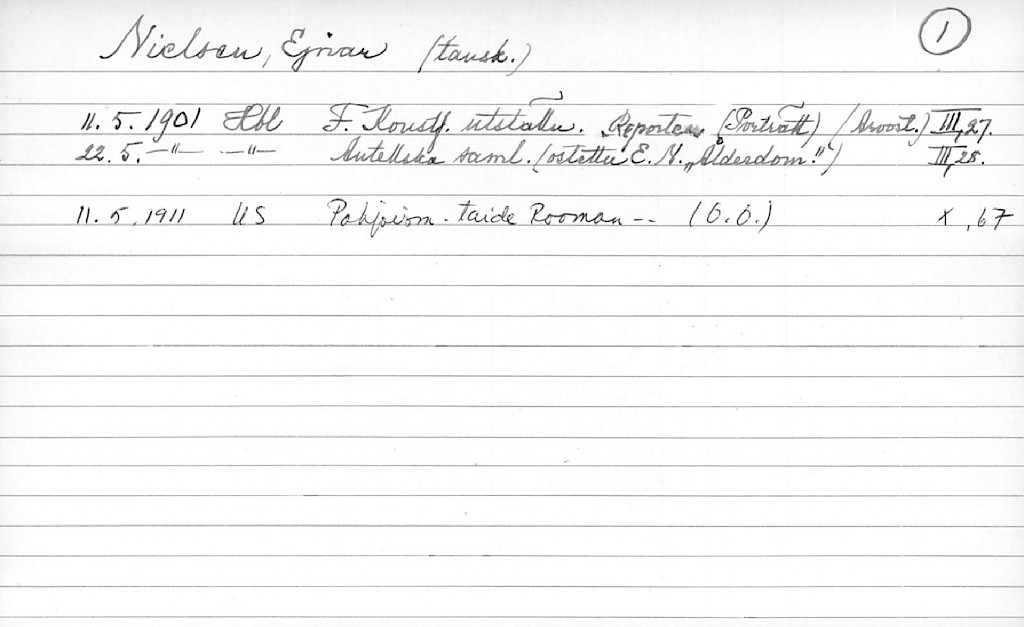 Nielsen, Ejnar (tansk.) 1
11. 5. 1901 Hbl F. Konstf. utställn. Reporter (Porträtt) (Arvost.) III, 27.
22. 5. —"— —"— Antellska saml. (ostettu E. N. „Ålderdom!") III, 28.
11. 5. 1911 US Pohjoism. taide Rooman -- (O.O.) X, 67